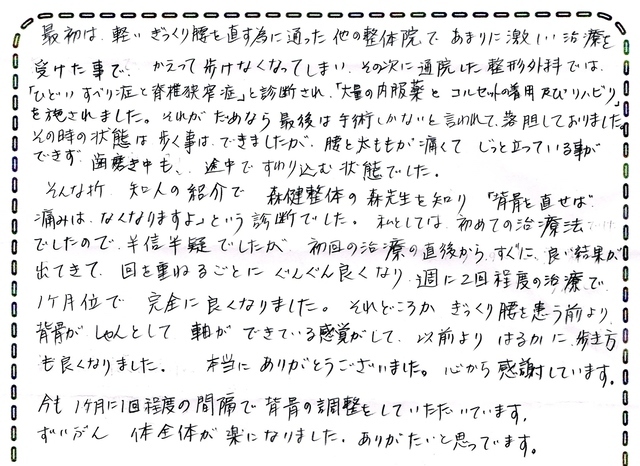 最初は、軽いぎっくり腰を直す為に通った他の整体院であまりに激しい治療を
受けた事で、かえって歩けなくなってしまい、その次に通院した整形外科では、
「ひどいすべり症と脊椎狭窄症」と診断され、「大量の内服薬とコルセットの着用及びリハビリ」
を施されました。それがだめなら最後は手術しかないと言われて、落胆しておりました。
その時の状態は歩く事は、できましたが、腰と太ももが痛くてじっと立っている事が
できず、歯磨き中も、途中ですわり込む状態でした。
そんな折、知人の紹介で 森健整体の森先生を知り「背骨を直せば
痛みは、なくなりますよ」という診断でした。私としては、初めての治療法
でしたので、半信半疑でしたが、初回の治療の直後から、すぐに、良い結果が
出てきて、回を重ねるごとにぐんぐん良くなり、週に2回程度の治療で、
1ヶ月位で 完全に良くなりました。それどころか ぎっくり腰を患う前より、
背骨がしゃんとして 軸ができている感覚がして、以前よりはるかに、歩き方
も良くなりました。 本当にありがとうございました。心から感謝しています。
今も1ヶ月に1回程度の間隔で背骨の調整をしていただいています。
ずいぶん 体全体が楽になりました。ありがたいと思っています。